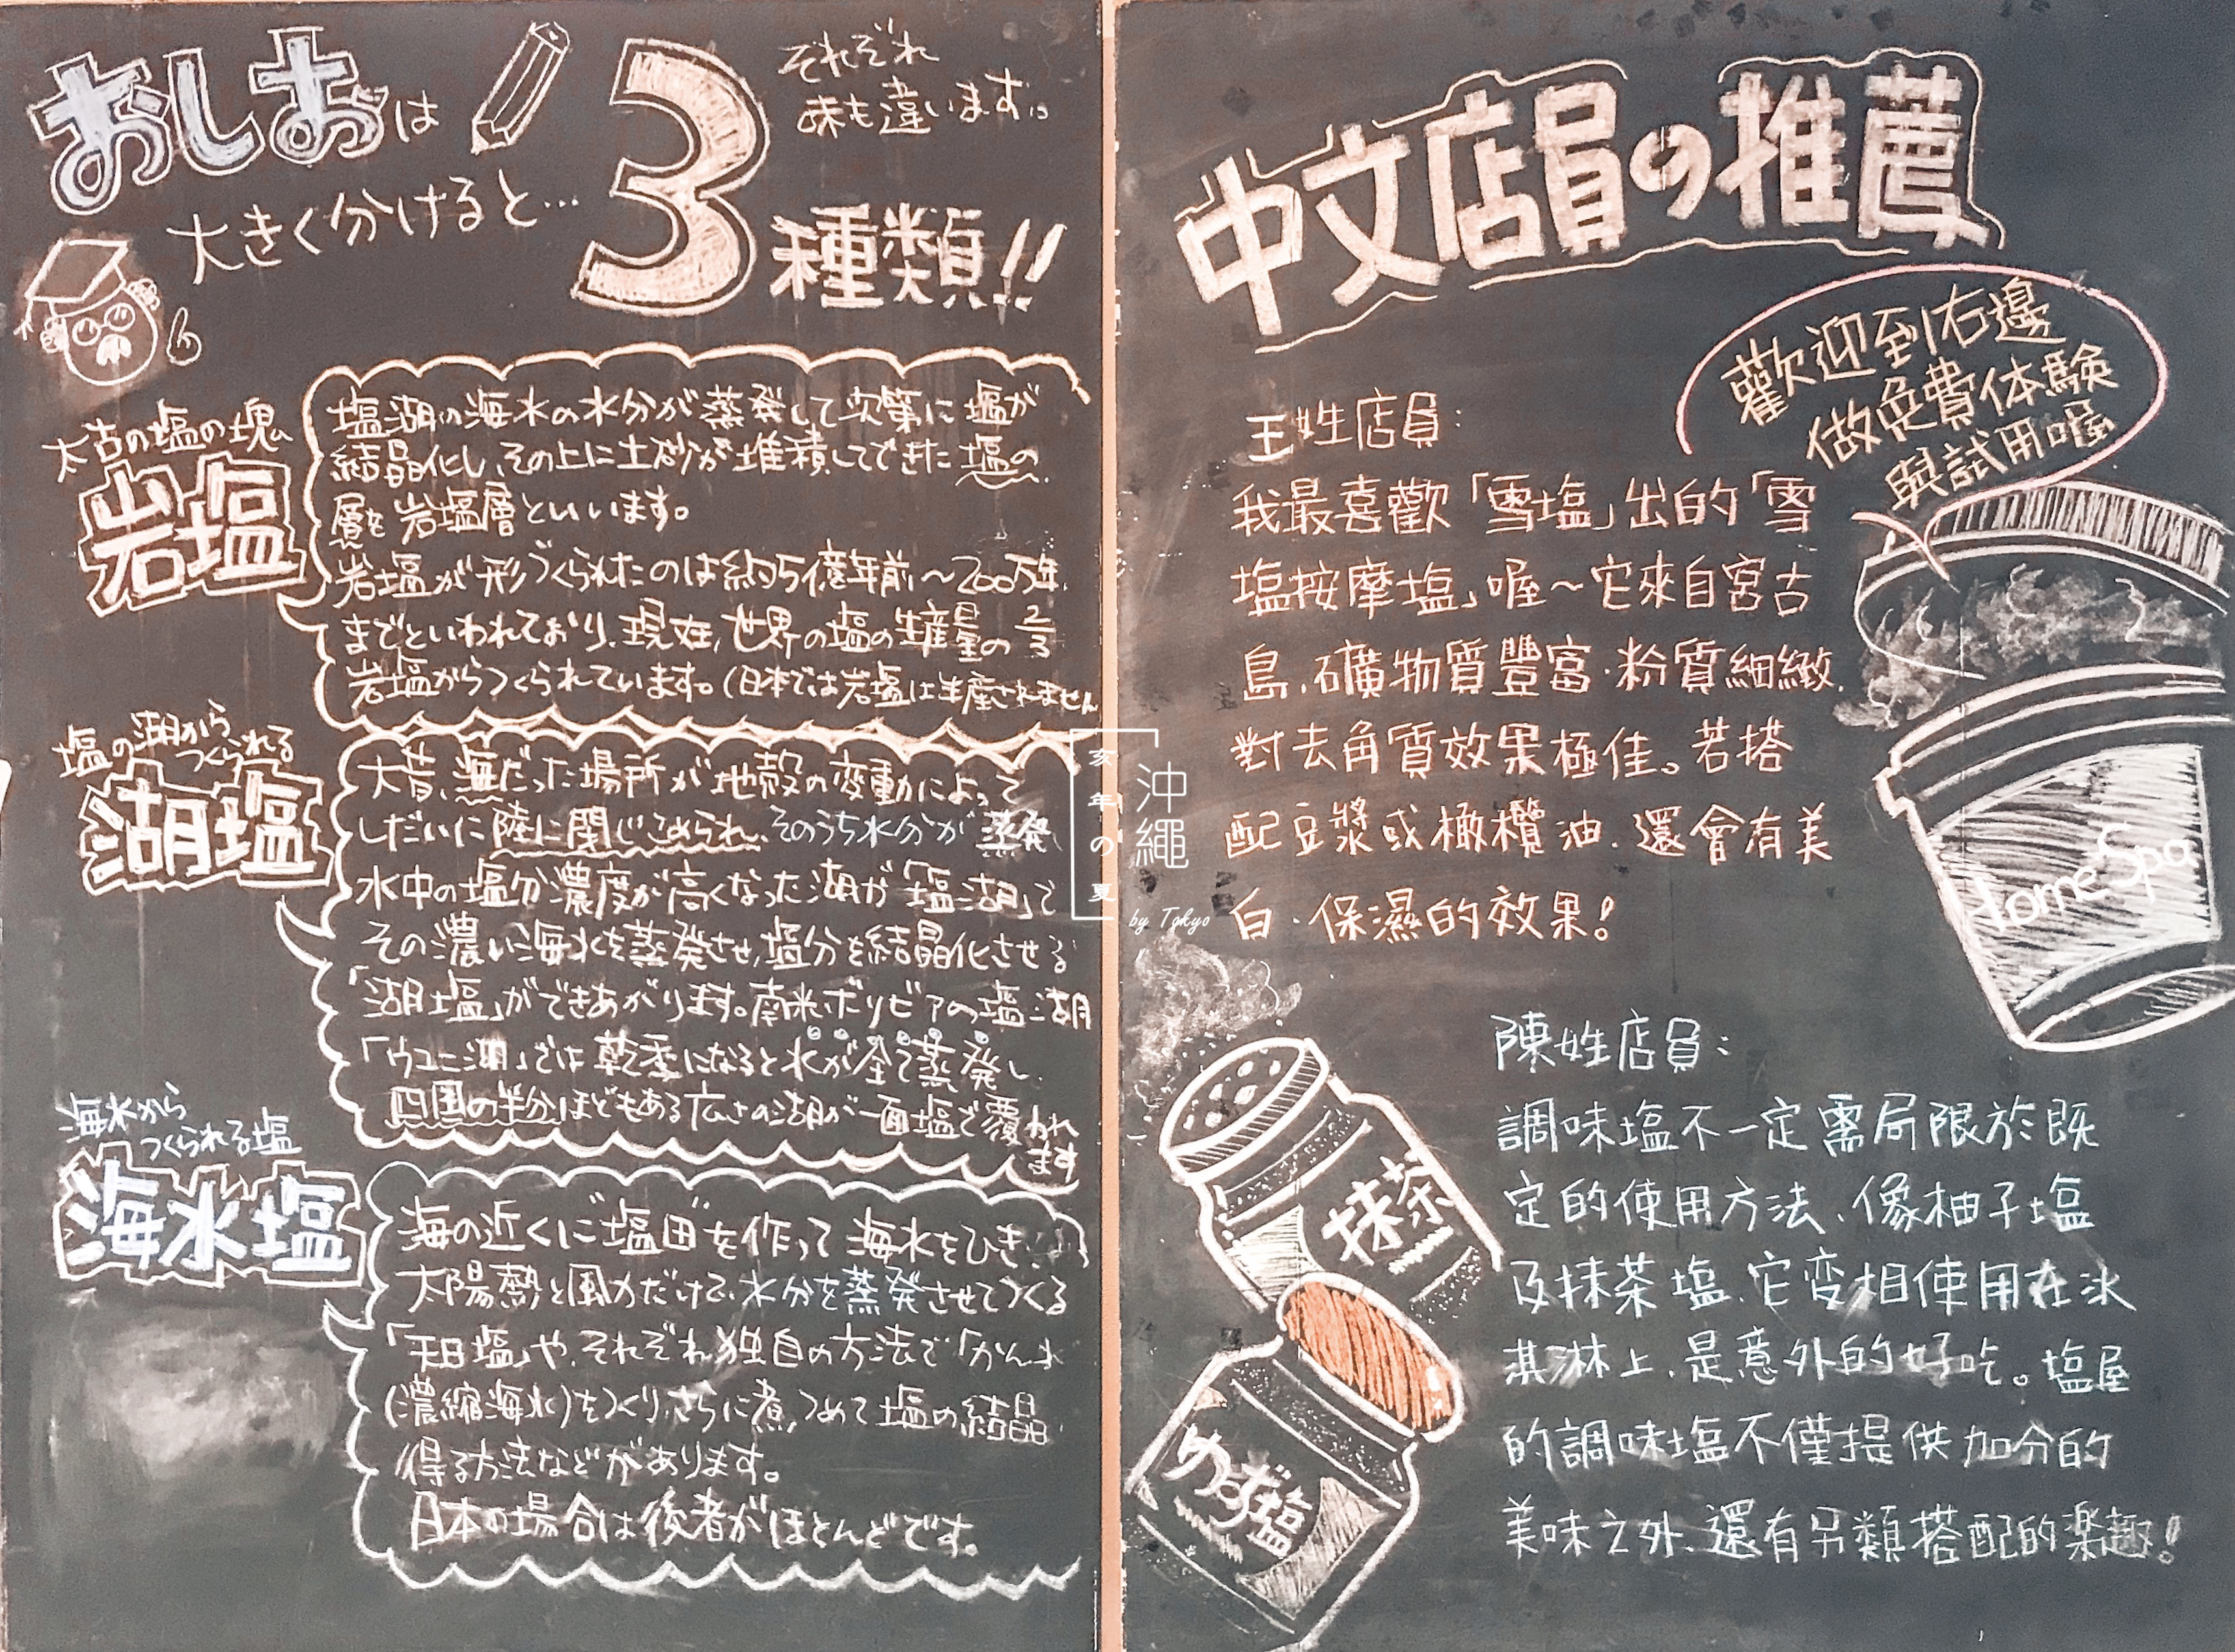 おしおは
大きく分けると…
3
種類!!
それぞれ
味も違います。
太古の塩の塊
岩塩
塩湖の海水の水分が蒸発して次第に塩が
結晶化し、その上に土砂が堆積してできた塩の
層を岩塩層といいます。
岩塩が形づくられたのは約5億年前〜200万年
までといわれており、現在、世界の塩の生産量の2/3
岩塩からつくられています。(日本では岩塩は生産されません
塩の湖から
つくられる
湖塩
大昔、海だった場所が地殻の変動によって
しだいに陸に閉じこめられ、そのうち水分が蒸発
水中の塩分濃度が高くなった湖が「塩湖」で
その濃い海水を蒸発させ、塩分を結晶化させる
「湖塩」ができあがります。南米ボリビアの塩湖
「ウユニ湖」では乾季になると水が全て蒸発し
四国の半分ほどもある広さの湖が一面塩で覆われ
ます
海水から
つくられる塩
海水塩
海の近くに塩田を作って海水をひき、
太陽熱と風力だけで、水分を蒸発させてつくる
「天日塩」や、それぞれ独自の方法で「かん水
(濃縮海水)をつくり、さらに煮つめて塩の結晶
得る方法などがあります。
日本の場合は後者がほとんどです。
中文店員の推薦
歡迎到右邊
做免費体験
與試用喔
王姓店員:
我最喜歡「雪塩」出的「雪
塩按摩塩」喔~它來自宮古
島,礦物質豐富·粉質細緻,
對去角質效果極佳。若搭
配豆漿或橄欖油,還會有美
白·保濕的效果!
Home Spa
陳姓店員:
調味塩不一定需局限於既
定的使用方法、像柚子塩
及抹茶塩、它変相使用在冰
淇淋上,是意外的好吃。塩屋
的調味塩不僅提供加分的
美味之外、還有另類搭配的楽趣!
抹茶
ゆず塩
亥年の夏
沖繩
by Tokyo